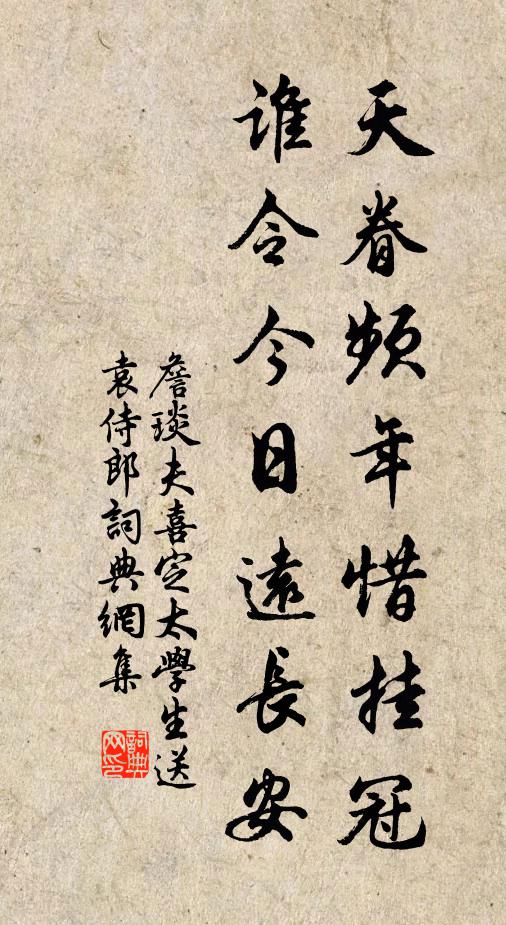 天眷頻年惜挂冠
誰令今日遠長安
詹琰夫喜定太學生送
袁侍郎詞典網集
詞典网印